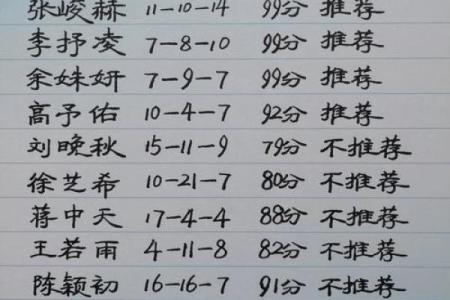 张峻赫 11-10-14 99分 推荐
李抒凌 7-8-10 99分 推荐
余姝妍 7-9-7 99分 推荐
高予佑 10-4-7 92分 推荐
刘晚秋 15-11-9 79分 不推荐
徐芝希 10-21-7 80分 不推荐
蒋中天 17-4-4 88分 不推荐
王若雨 4-11-8 82分 不推荐
陈颖初 16-16-7 91分 不推荐